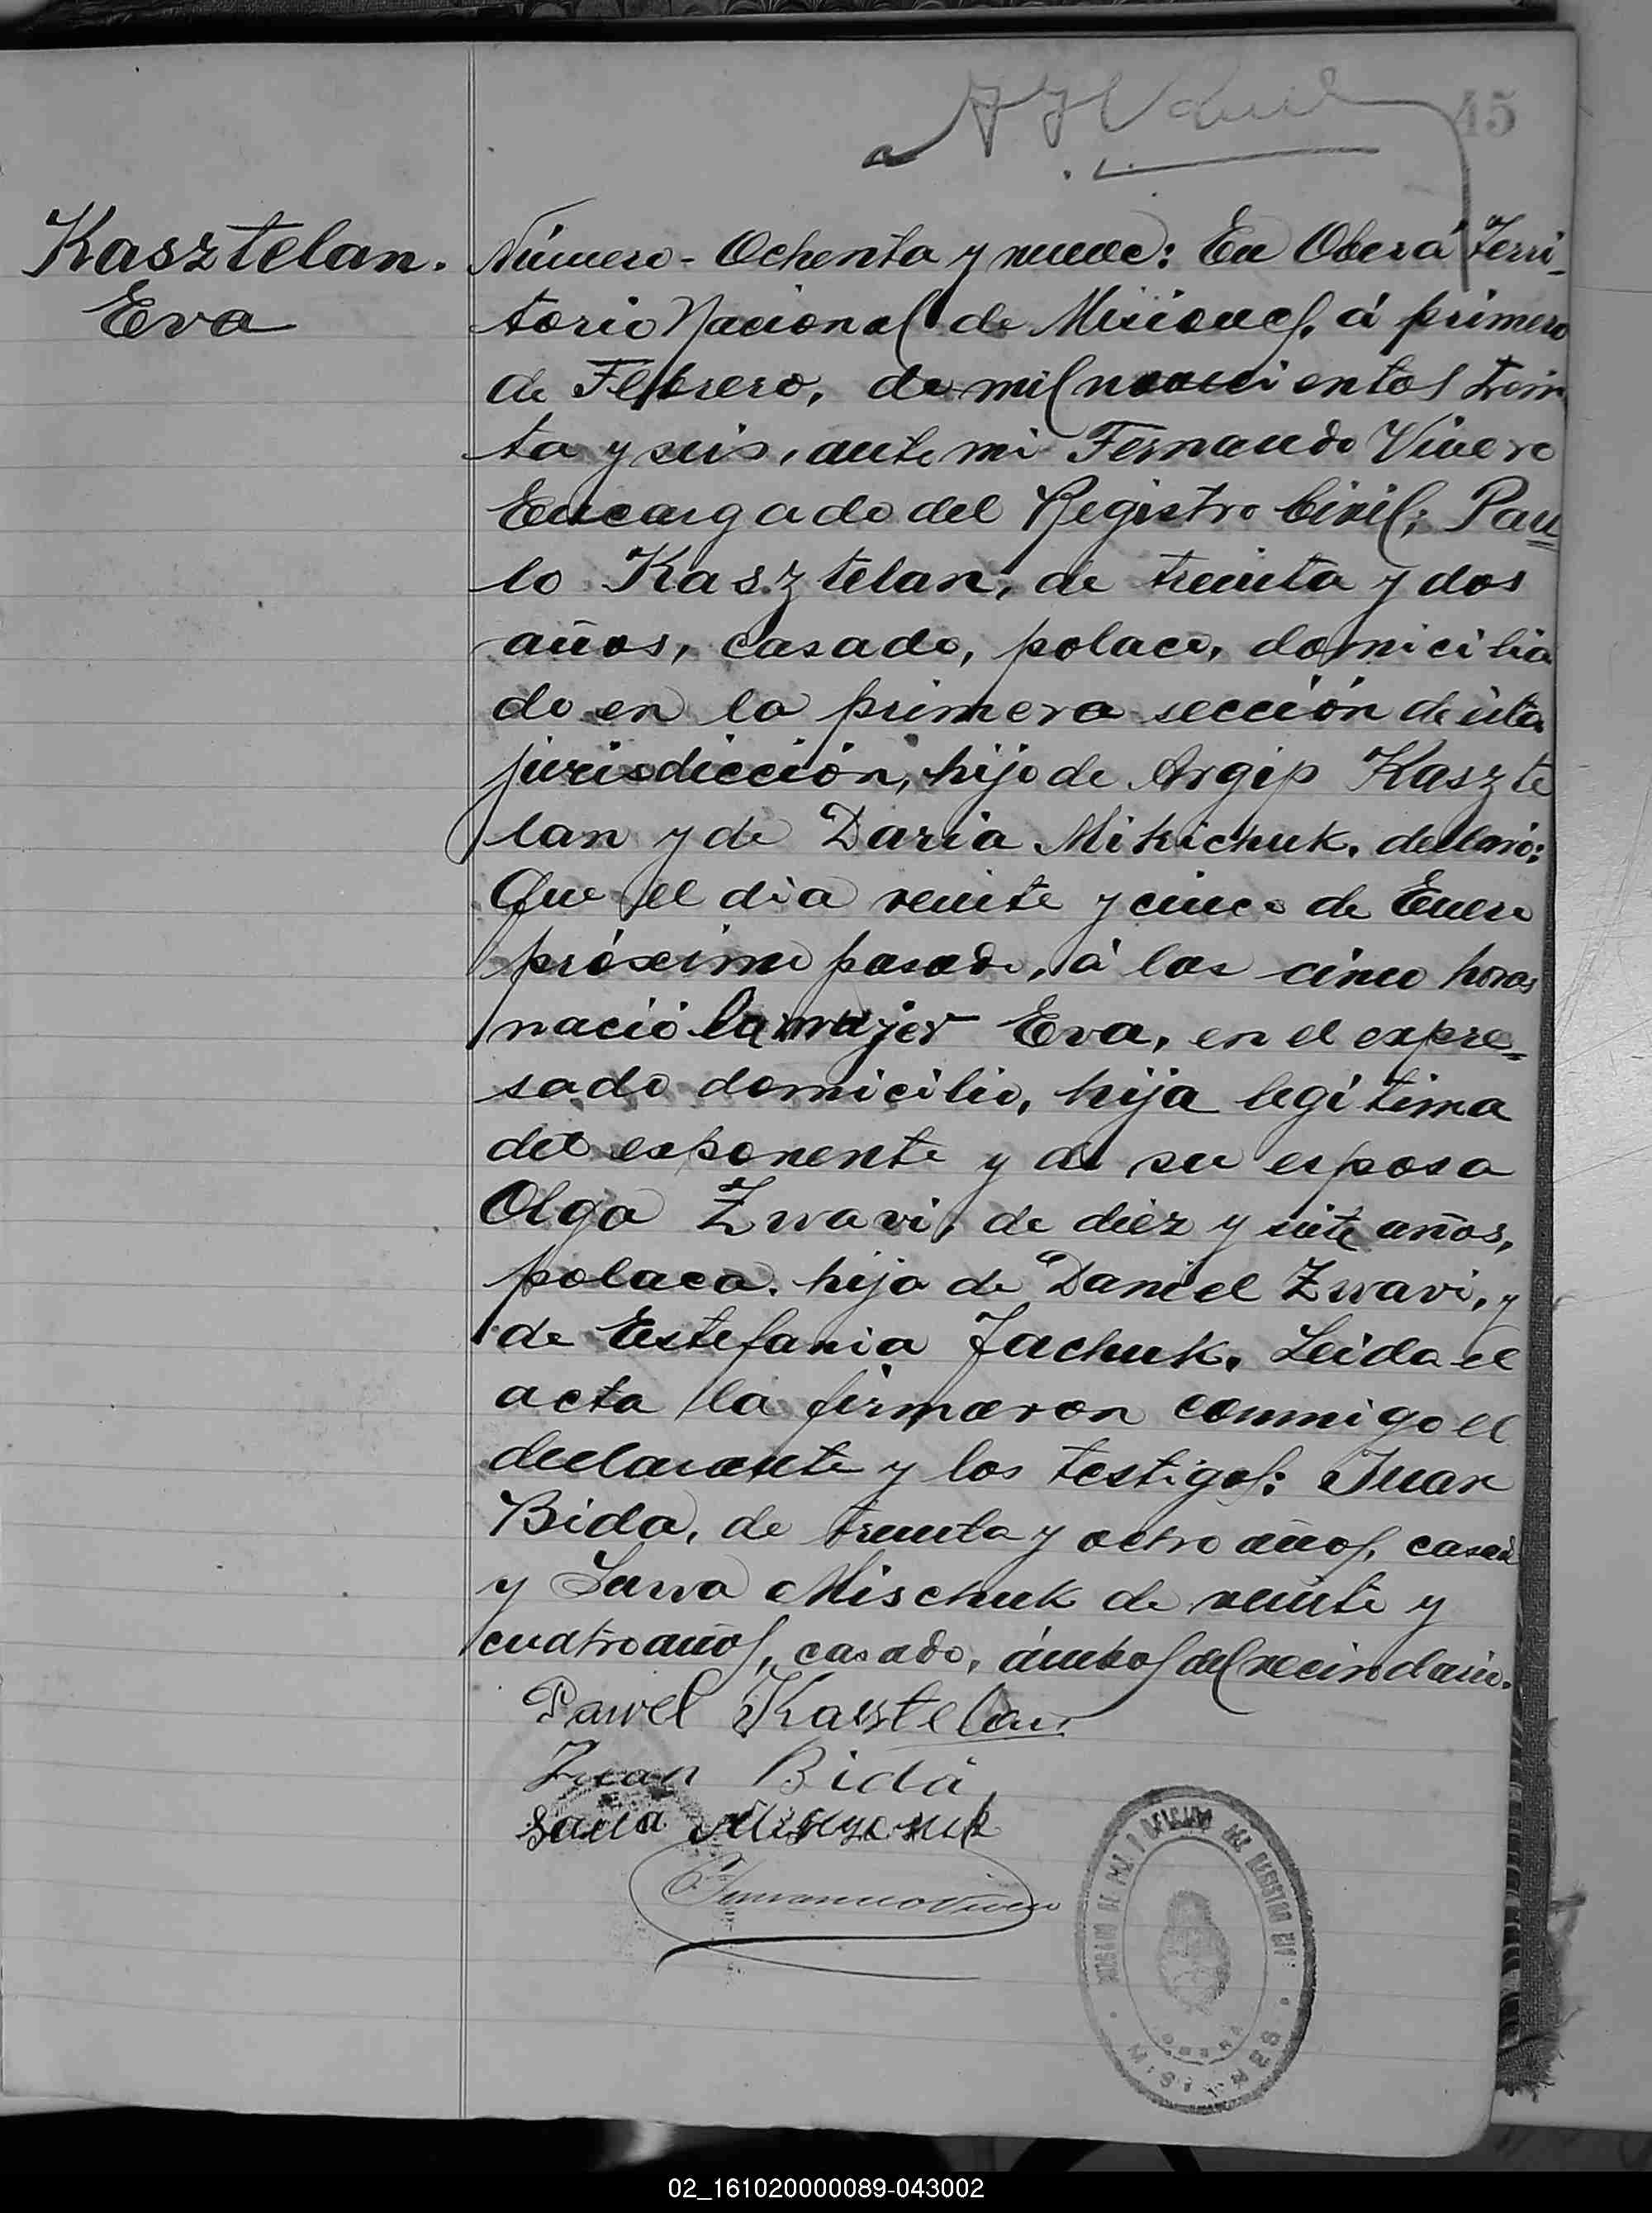 45
Kasztelan.
Eva
Número - Ochenta y nueve: En Oberá Terri-
torio Nacional de Misiones, á primero
de Febrero, de mil novecientos trein
ta y seis, ante mi Fernando Vivero
Encargado del Registro Civil; Pau
lo Kasztelan, de treinta y dos
años, casado, polaco, domicilia
do en la primera sección de ésta
jurisdicción, hijo de Argip Kaszte
lan y de Daria Mikichuk, declaró:
Que el dia veinte y cinco de Enero
próximo pasado, á las cinco horas
nació la mujer Eva, en el expre-
sado domicilio, hija legítima
del esponente y de su esposa
Olga Zwavi, de diez y siete años,
polaca, hija de Daniel Zwavi, y
de Estefania Jachuk. Leida el
acta la firmaron conmigo el
declarante y los testigos: Juan
Bida, de treinta y ocho años, casado
y Sawa Mischuk de veinte y
cuatro años, casado, ámbos del vecindario.
Pawel Kasztelan
Juan Bida
Sawa
Fernando Vivero
JUZGADO DE PAZ Y OFICINA DEL REGISTRO CIVIL
OBERA
MISIONES
02_161020000089-043002